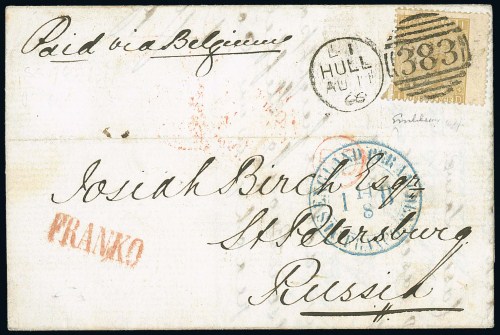 Paid via Belgium
L 1
HULL
AU 11
66
383
Josiah Birch Esqr
St Petersburg
Russia
FRANKO